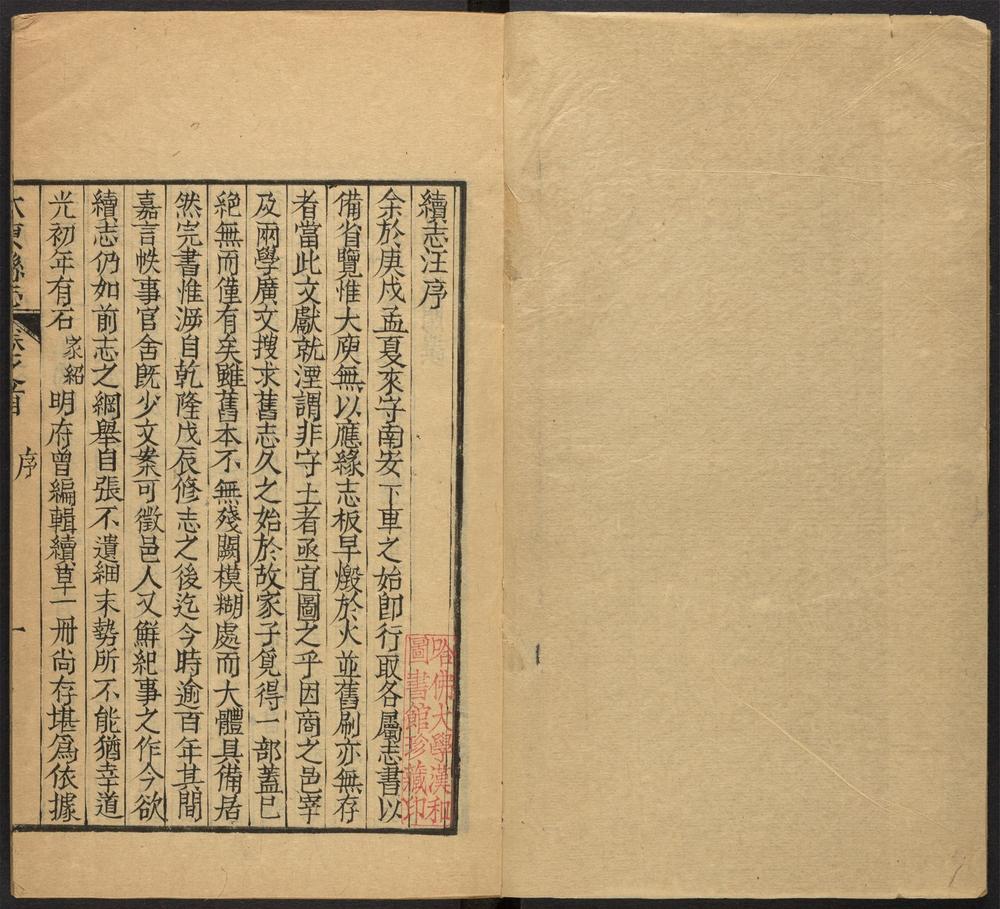 續志汪序
余於庚戌孟夏來守南安下車之始卽行取各屬志書以
備省覽惟大庾無以應緣志板早燬於火並舊刷亦無存
者當此文獻就湮謂非守土者亟宜圖之乎因商之邑宰
及兩學廣文搜求舊志久之始於故家子覓得一部蓋已
絕無而僅有矣雖舊本不無殘闕模糊處而大體具備居
然完書惟溯自乾隆戊辰修志之後迄今時逾百年其間
嘉言帙事官舍旣少文案可徵邑人又鮮紀事之作今欲
續志仍如前志之綱舉自張不遺細末勢所不能猶幸道
光初年有石家紹明府曾編輯續草一冊尚存堪爲依據
大庾縣志 卷之首 序 一
哈佛大學漢和
圖書館珍藏印